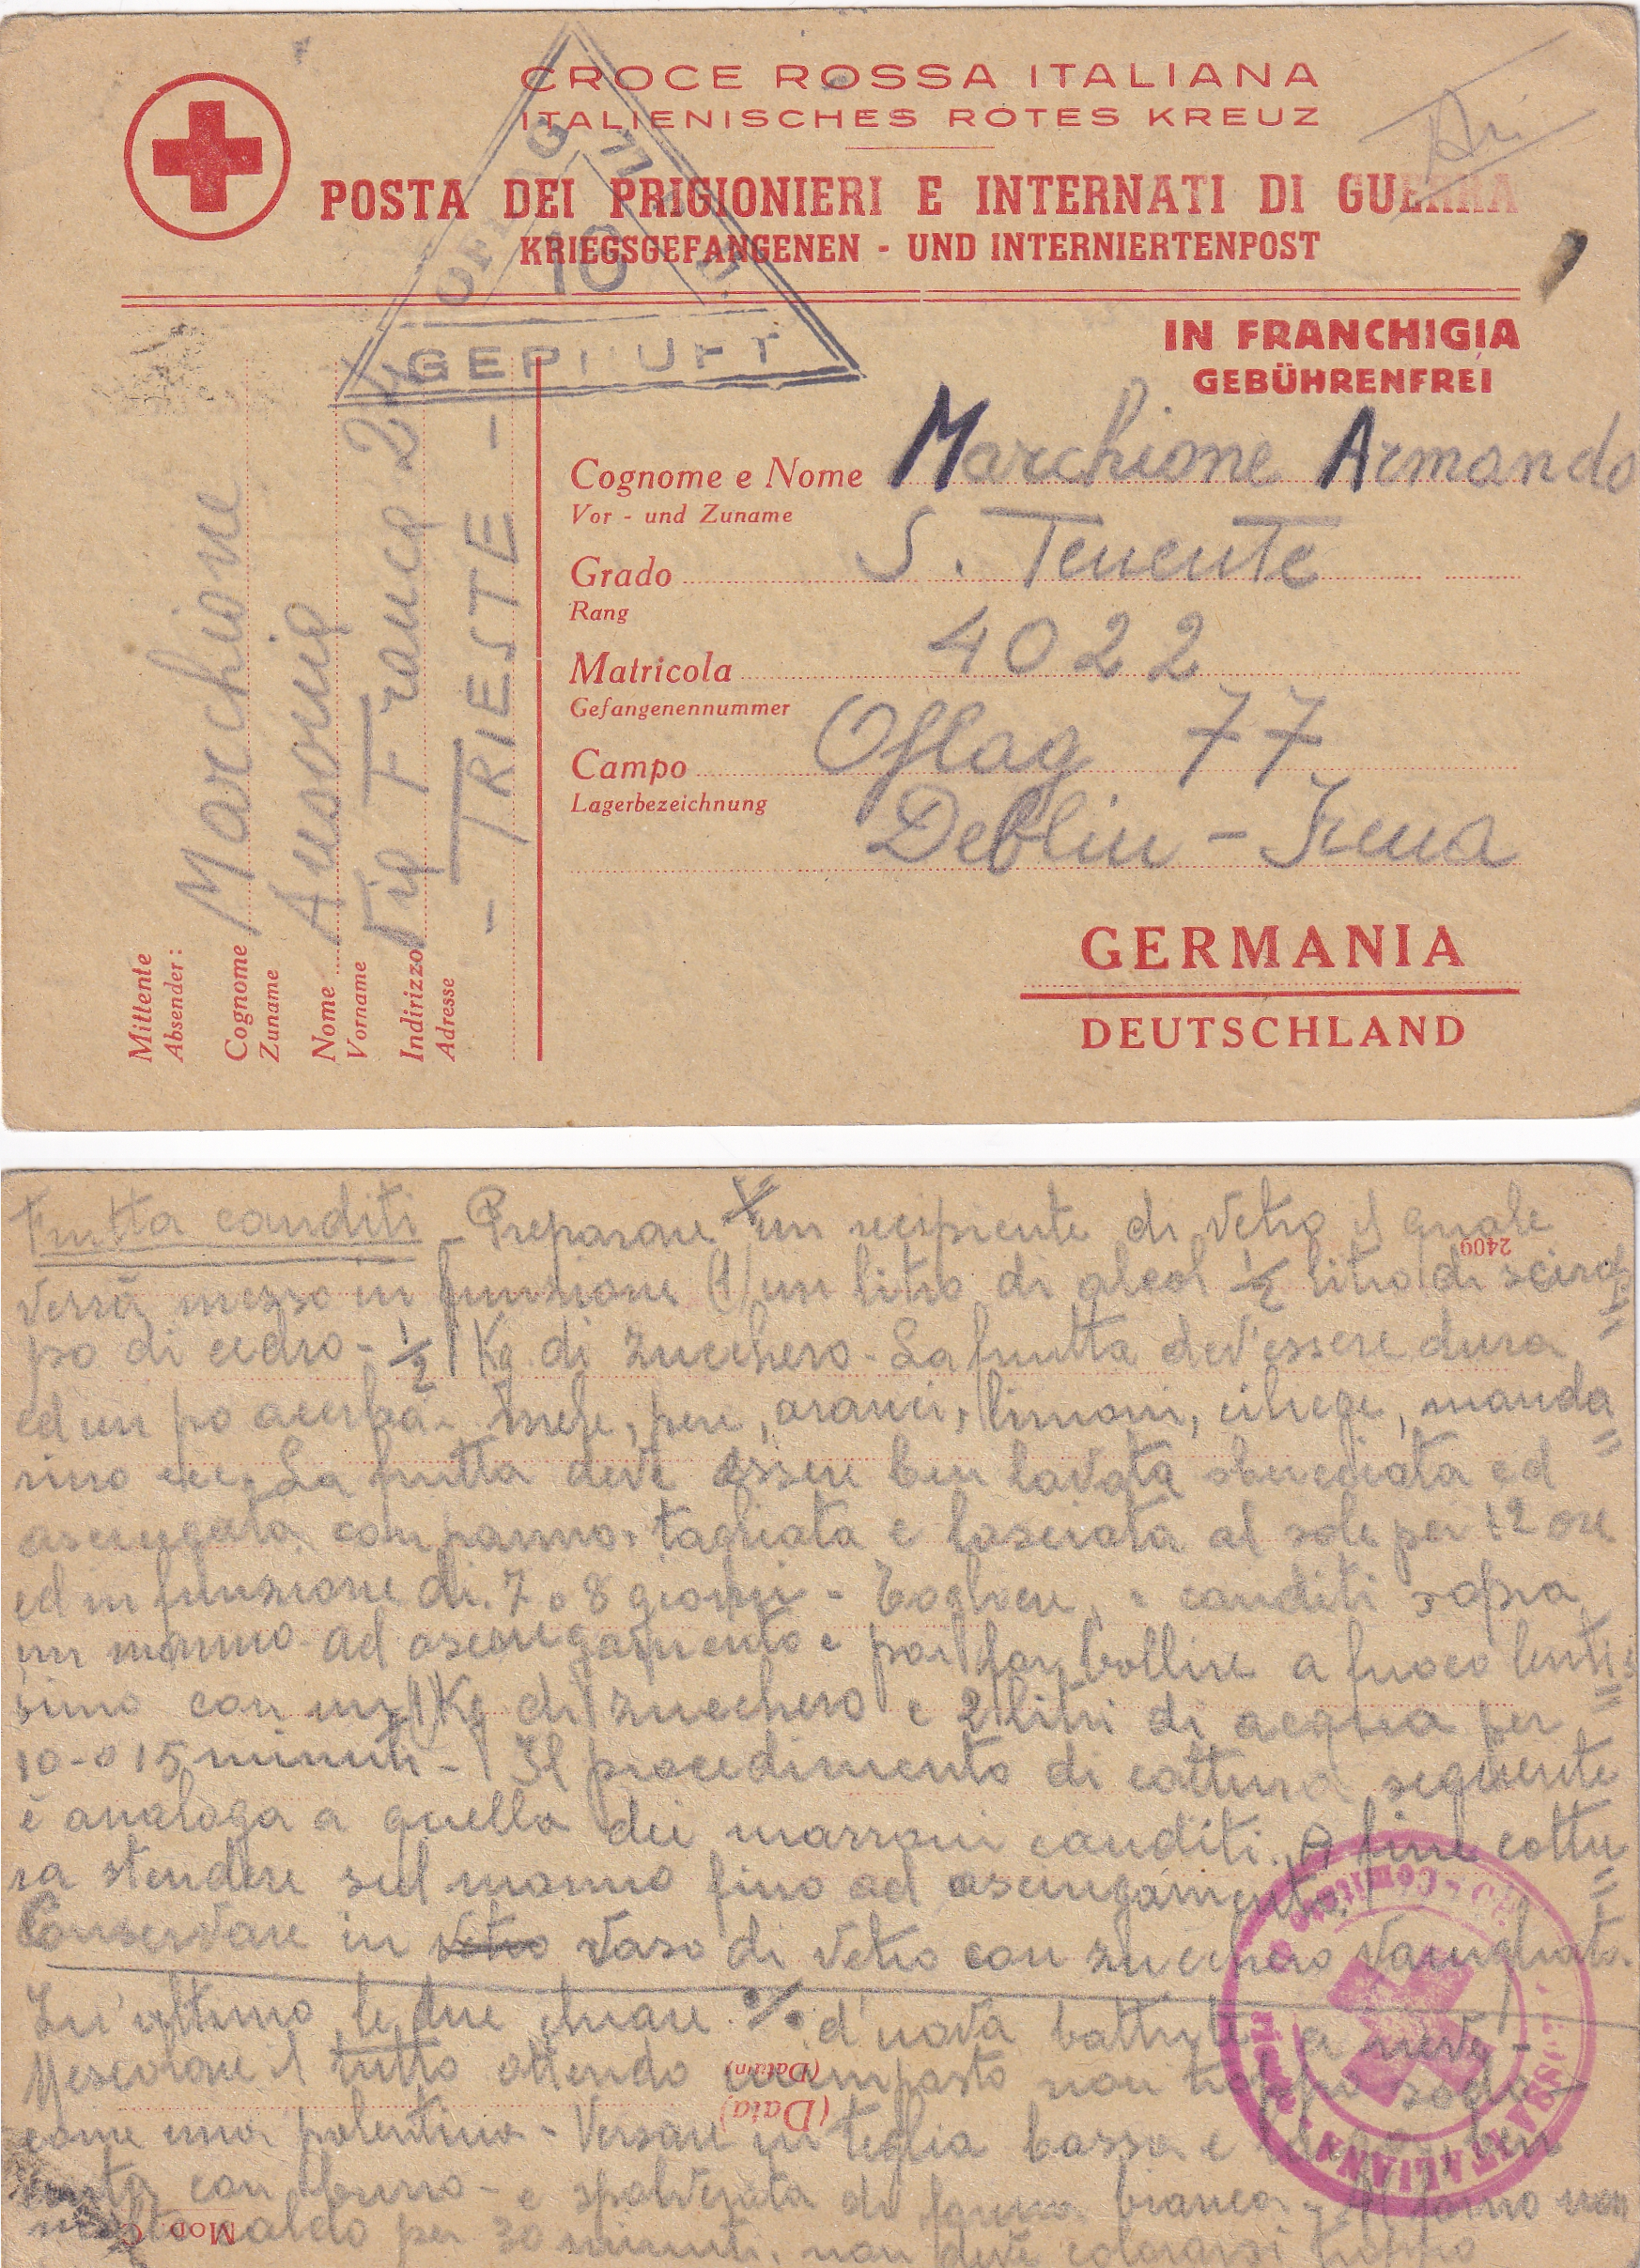 CROCE ROSSA ITALIANA
ITALIENISCHES ROTES KREUZ
POSTA DEI PRIGIONIERI E INTERNATI DI GUERRA
KRIEGSGEFANGENEN - UND INTERNIERTENPOST
OFLAG 77
10
GEPRÜFT
IN FRANCHIGIA
GEBÜHRENFREI
Cognome e Nome Marchione Armando
Vor - und Zuname
Grado S. Tenente
Rang
Matricola 4022
Gefangenennummer
Campo Oflag 77
Lagerbezeichnung
Deblin - Irena
GERMANIA
DEUTSCHLAND
Mittente
Absender:
Cognome Marchione
Zuname
Nome Ausonio
Vorname
Indirizzo Via Franca 24
Adresse
- TRIESTE -
Frutta canditi - Preparare un recipiente di vetro il quale
2409
verrà messo in funzione (1) un litro di alcol ½ litro di scirop
po di cedro - ½ Kg di zucchero - La frutta dev'essere dura
ed un po acerba - mele, pere, aranci, limoni, ciliege, manda
rino ecc. La frutta deve essere ben lavata sbucciata ed
asciugata con panno, tagliata e lasciata al sole per 12 ore
ed in funzione di 7 o 8 giorni - Togliere i canditi sopra
un marmo ad asciugamento e poi far bollire a fuoco lentis
simo con un (1) Kg di zucchero e 2 litri di acqua per
10 - o 15 minuti - Il procedimento di cottura seguente
è analoga a quella dei marroni canditi. A fine cottu
ra stendere sul marmo fino ad asciugamento.
Conservare in vetro vaso di vetro con zucchero vanigliato.
In ultimo le due chiare d'uova battute a neve -
Mescolare il tutto impasto non troppo sodo -
(Datum)
(Data)
come una polentina - Versare in teglia bassa e ben
unta con burro - e spolverata di farina bianca - Al forno non
molto caldo per 30 minuti, non deve colorarsi troppo
Mod
ITALIANA